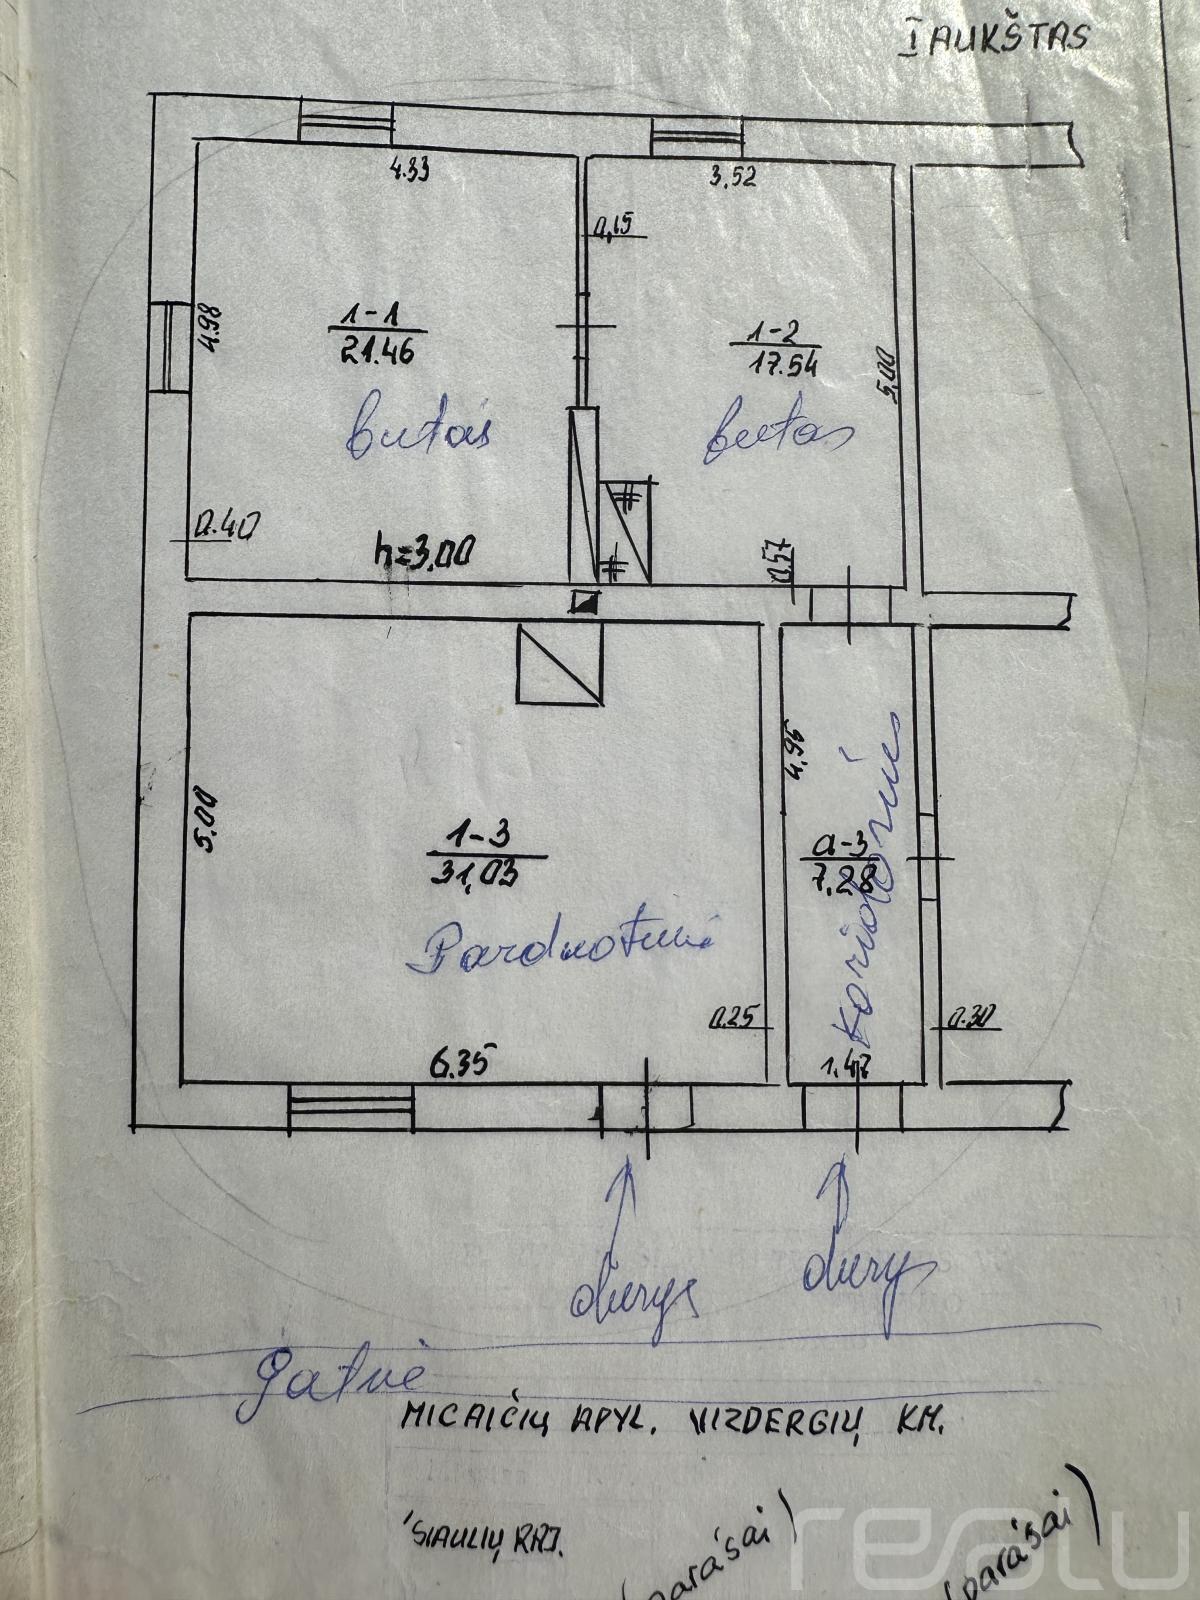 I AUKŠTAS
4.33
3,52
0,15
4.98
1-1
21.46
1-2
17.54
5,00
butas
butas
0.40
h=3,00
0.57
4,95
5.00
1-3
31,03
a-3
7,28
Koridorius
Parduotuvė
0.25
0.30
6.35
1.47
durys
durys
Gatvė
MICAIČIŲ APYL. VIZDERGIŲ KM.
ŠIAULIŲ RAJ.
(parašai)
(parašai)
realu